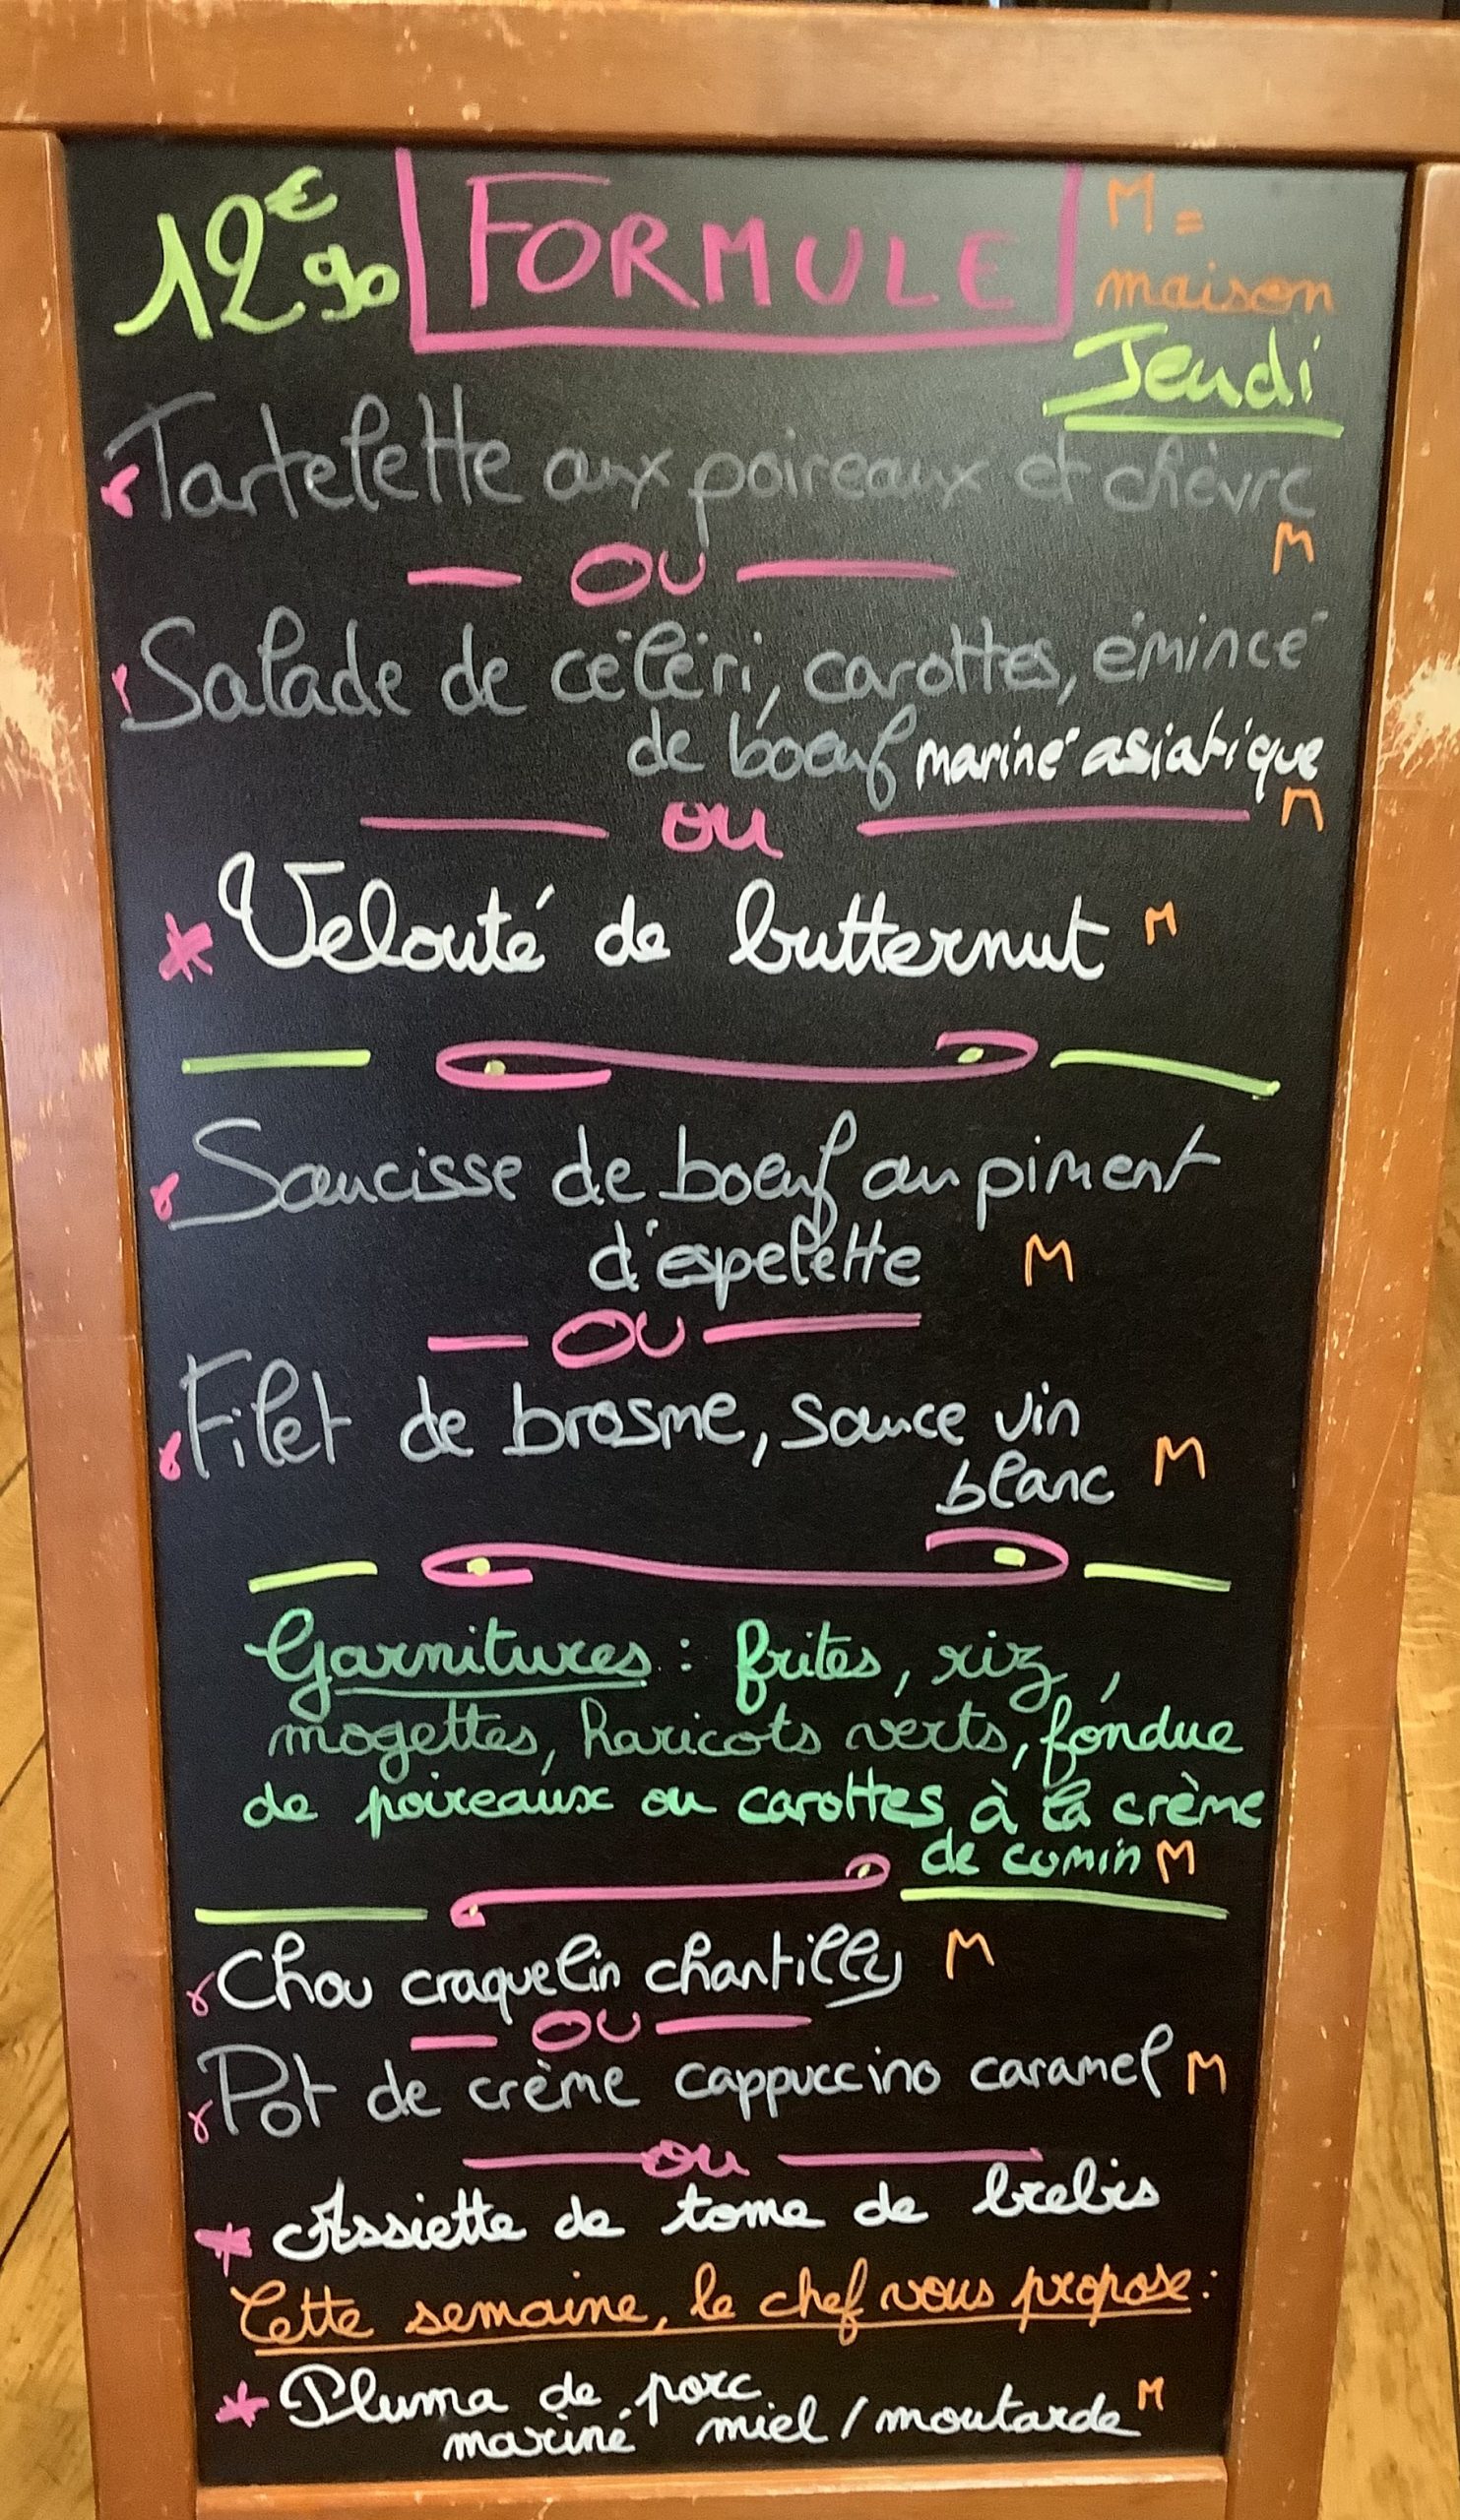 12€90 FORMULE M =
maison
Jeudi
Tartelette aux poireaux et chèvre
M
OU
Salade de céléri, carottes, émincé
de boeuf mariné asiatique
M
ou
* Velouté de butternut M
Saucisse de boeuf au piment
d'espelette M
OU
Filet de brosme, sauce vin
blanc M
Garnitures : frites, riz,
mogettes, haricots verts, fondue
de poireaux ou carottes à la crème
de cumin M
Chou craquelin chantilly M
OU
Pot de crème cappuccino caramel M
ou
* Assiette de tome de brebis
Cette semaine, le chef vous propose :
* Pluma de porc
mariné miel / moutarde M